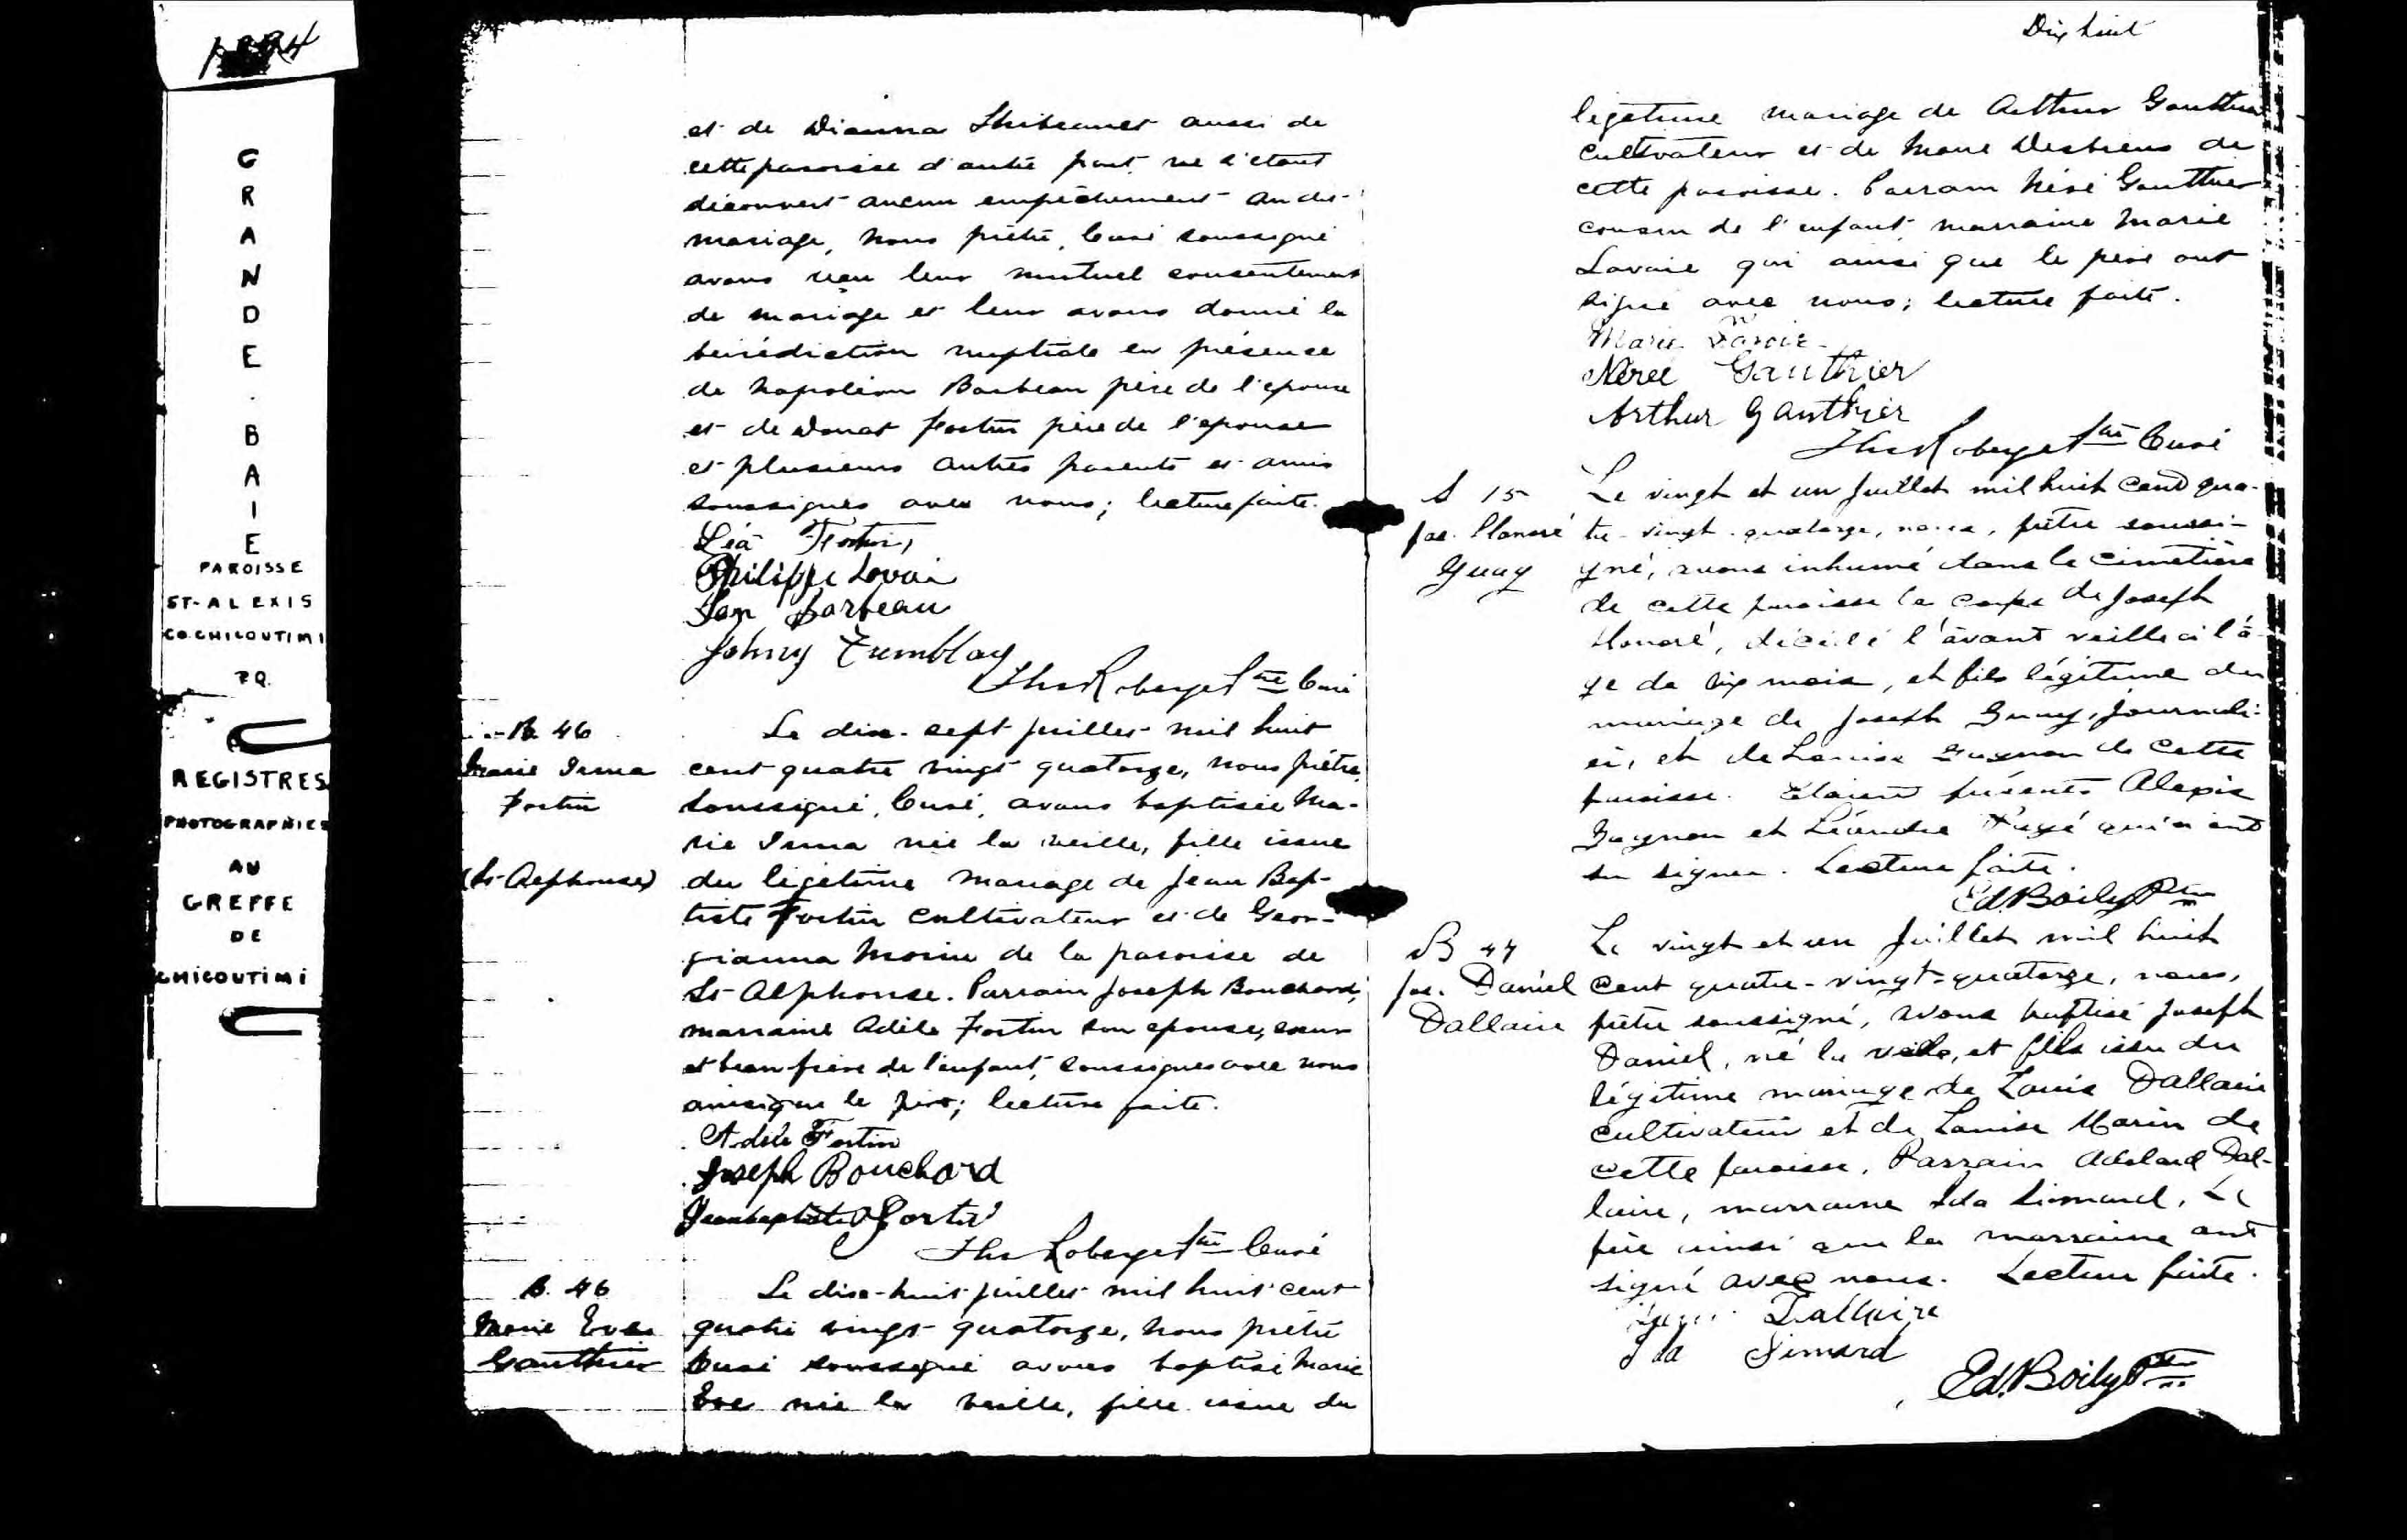 1894
GRANDE-BAIE
PAROISSE
ST-ALEXIS
CO CHICOUTIMI
P.Q.
REGISTRES
PHOTOGRAPHIES
AU
GREFFE
DE
CHICOUTIMI
et de Dianna Thibeault aussi de
cette paroisse d'autre part ne s'étant
découvert aucun empêchement au dit
mariage, nous prêtre, Curé soussigné
avons reçu leur mutuel consentement
de mariage et leur avons donné la
bénédiction nuptiale en présence
de Napoléon Barbeau père de l'époux
et de Donat Fortin père de l'épouse
et plusieurs autres parents et amis
soussignés avec nous; lecture faite.
Léa Fortin
Philippe Lavoie
Barbeau
Johny Tremblay
Ths Roberge Ptre Curé
B. 46
Marie Irma
Fortin
(St-Alphonse)
Le dix-sept juillet mil huit
cent quatre vingt quatorze, nous prêtre
soussigné, Curé, avons baptisée Ma-
rie Irma née la veille, fille issue
du légitime mariage de Jean Bap-
tiste Fortin cultivateur et de Geor-
gianna Morin de la paroisse de
St-Alphonse. Parrain Joseph Bouchard,
marraine Adèle Fortin son épouse, sœur
et beau frère de l'enfant, soussignés avec nous
ainsi que le père; lecture faite.
Adèle Fortin
Joseph Bouchard
Jeanbaptiste Fortin
Ths Roberge Ptre Curé
B. 46
Marie Eve
Gauthier
Le dix-huit juillet mil huit cent
quatre vingt quatorze, nous prêtre
Curé soussigné avons baptisé Marie
Eve née la veille, fille issue du
Dix huit
légitime mariage de Arthur Gauthier
cultivateur et de Marie Desbiens de
cette paroisse. Parrain Nérée Gauthier
cousin de l'enfant, marraine Marie
Lavoie qui ainsi que le père ont
signé avec nous; lecture faite.
Marie Lavoie
Nérée Gauthier
Arthur Gauthier
Ths Roberge Ptre Curé
S 15
Jos. Honoré
Guay
Le vingt et un Juillet mil huit cent qua-
tre-vingt-quatorze, nous, prêtre soussi-
gné, avons inhumé dans le cimetière
de cette paroisse le corps de Joseph
Honoré, décédé l'avant veille à l'â-
ge de six mois, et fils légitime du
mariage de Joseph Guay, journali-
er, et de Louise Gagnon de cette
paroisse. Etaient présents Alexis
Gagnon et Léandre qui n'ont
su signer. Lecture faite.
Ed. Boily Ptre
B 47
Jos. Daniel
Dallaire
Le vingt et un Juillet mil huit
cent quatre-vingt-quatorze, nous,
prêtre soussigné, avons baptisé Joseph
Daniel, né la veille, et fils issu du
légitime mariage de Louis Dallaire
cultivateur et de Louise Morin de
cette paroisse. Parrain Adelard Dal-
laire, marraine Ida Simard. Le
père ainsi que la marraine ont
signé avec nous. Lecture faite.
Dallaire
Ida Simard
Ed. Boily Ptre